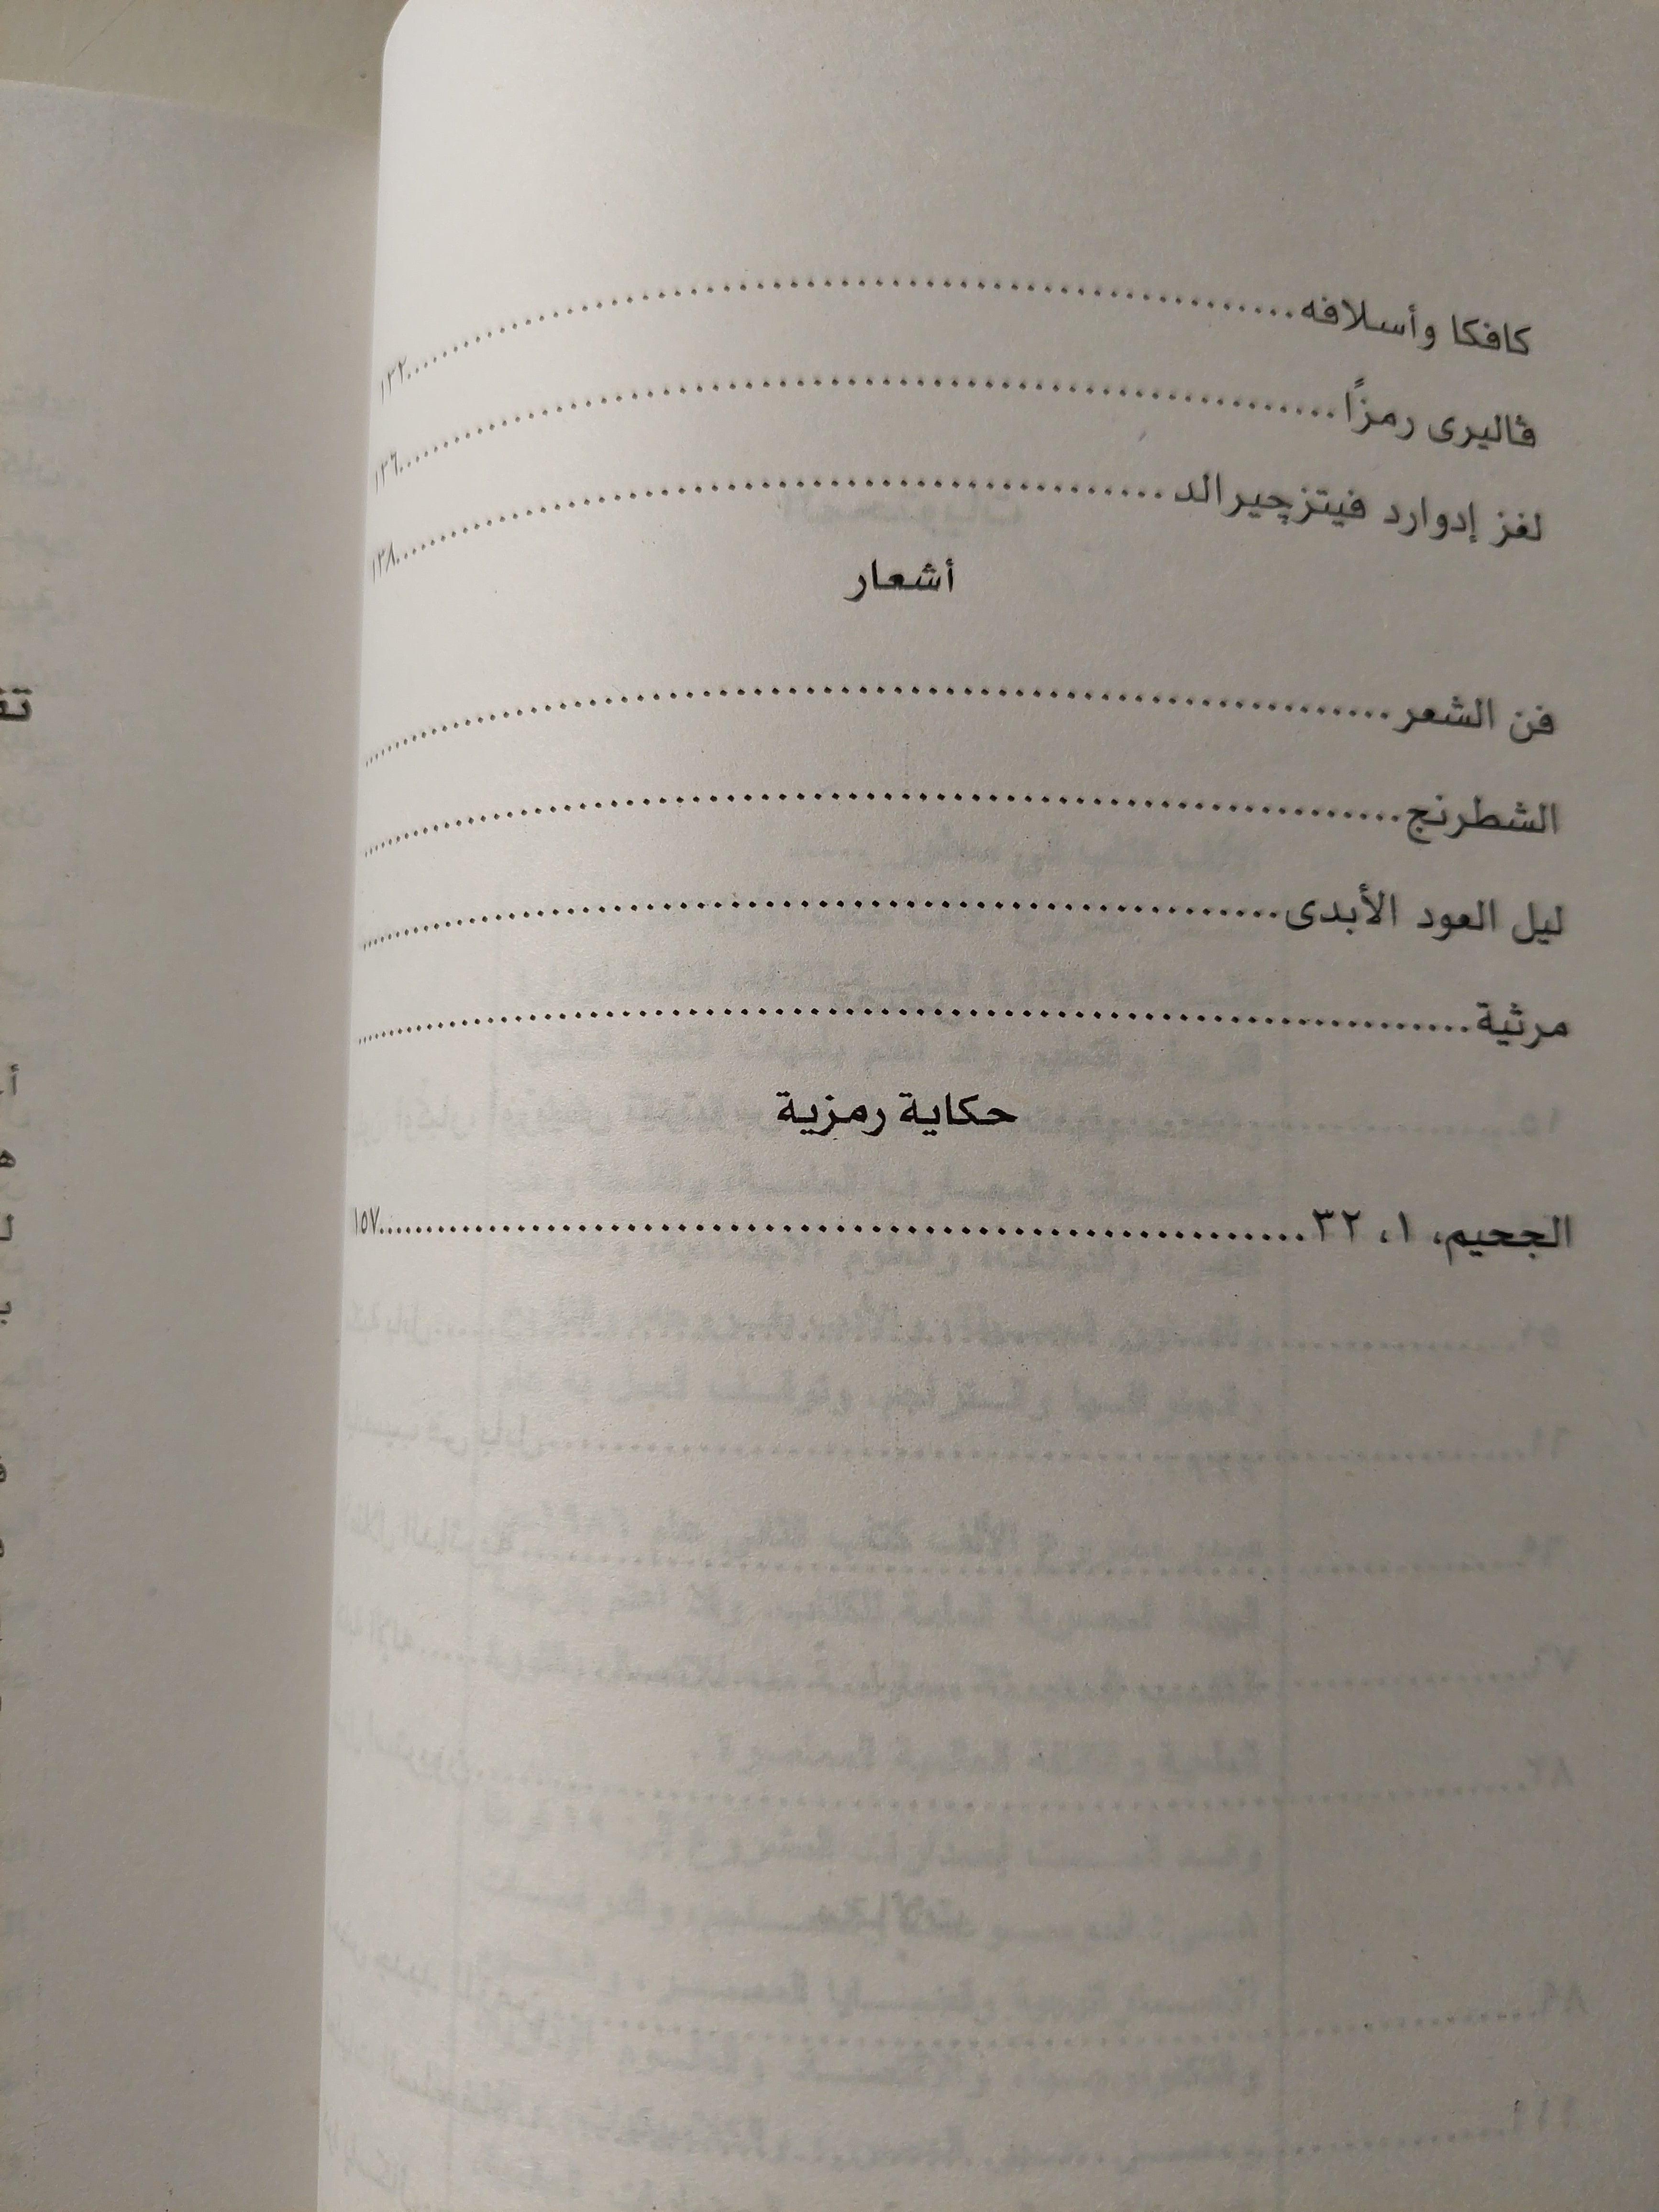 كافكا وأسلافه..........١٣٢
ڤاليرى رمزًا..........١٣٦
لغز إدوارد فيتزچيرالد..........١٣٨
أشعار
فن الشعر..........
الشطرنج..........
ليل العود الأبدى..........
مرثية..........
حكاية رمزية
الجحيم، ١، ٣٢..........١٥٧